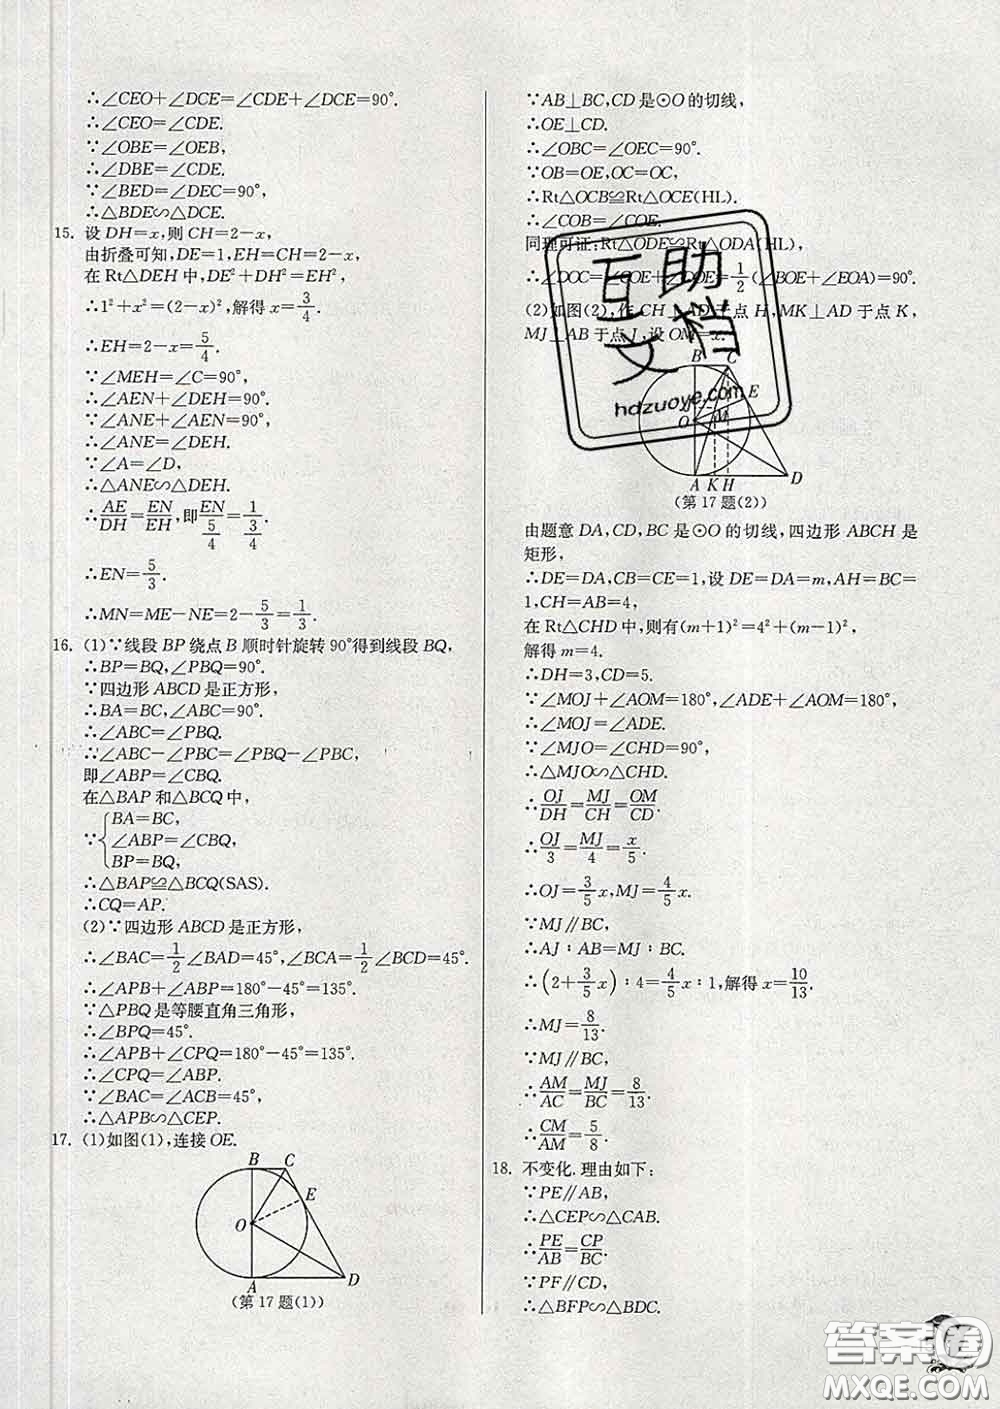 ∴∠CEO+∠DCE=∠CDE+∠DCE=90°.
∴∠CEO=∠CDE.
∵∠OBE=∠OEB,
∴∠DBE=∠CDE.
∵∠BED=∠DEC=90°,
∴△BDE∽△DCE.
15. 设 DH=x,则 CH=2-x,
由折叠可知,DE=1,EH=CH=2-x,
在 Rt△DEH 中,DE²+DH²=EH²,
∴1²+x²=(2-x)²,解得 x=3/4.
∴EH=2-x=5/4.
∵∠MEH=∠C=90°,
∴∠AEN+∠DEH=90°.
∵∠ANE+∠AEN=90°,
∴∠ANE=∠DEH.
∵∠A=∠D,
∴△ANE∽△DEH.
∴AE/DH=EN/EH,即EN/(5/4)=1/(3/4).
∴EN=5/3.
∴MN=ME-NE=2-5/3=1/3.
16. (1)∵线段 BP 绕点 B 顺时针旋转 90°得到线段 BQ,
∴BP=BQ,∠PBQ=90°.
∵四边形 ABCD 是正方形,
∴BA=BC,∠ABC=90°.
∴∠ABC=∠PBQ.
∴∠ABC-∠PBC=∠PBQ-∠PBC,
即∠ABP=∠CBQ.
在△BAP 和△BCQ 中,
BA=BC,
∵{∠ABP=∠CBQ,
BP=BQ,
∴△BAP≌△BCQ(SAS).
∴CQ=AP.
(2)∵四边形 ABCD 是正方形,
∴∠BAC=1/2∠BAD=45°,∠BCA=1/2∠BCD=45°.
∴∠APB+∠ABP=180°-45°=135°.
∵△PBQ 是等腰直角三角形,
∴∠BPQ=45°.
∴∠APB+∠CPQ=180°-45°=135°.
∴∠CPQ=∠ABP.
∵∠BAC=∠ACB=45°,
∴△APB∽△CEP.
17. (1)如图(1),连接 OE.
B C
E
O
A D
(第 17 题(1))
∵AB⊥BC,CD 是⊙O 的切线,
∴OE⊥CD.
∴∠OBC=∠OEC=90°.
∵OB=OE,OC=OC,
∴Rt△OCB≌Rt△OCE(HL).
∴∠COB=∠COE.
同理可证:Rt△ODE≌Rt△ODA(HL),
∴∠DOC=∠COE+∠DOE=1/2(∠BOE+∠EOA)=90°.
(2)如图(2),作 CH⊥AD 于点 H,MK⊥AD 于点 K,
MJ⊥AB 于点 J,设 OM=x.
互助文档
hdzuoye.com
C
E
J
M
O
A K H D
(第 17 题(2))
由题意 DA,CD,BC 是⊙O 的切线,四边形 ABCH 是
矩形,
∴DE=DA,CB=CE=1,设 DE=DA=m,AH=BC=
1,CH=AB=4,
在 Rt△CHD 中,则有(m+1)²=4²+(m-1)²,
解得 m=4.
∴DH=3,CD=5.
∵∠MOJ+∠AOM=180°,∠ADE+∠AOM=180°,
∴∠MOJ=∠ADE.
∵∠MJO=∠CHD=90°,
∴△MJO∽△CHD.
∴OJ/DH=MJ/CH=OM/CD.
∴OJ/3=MJ/4=x/5.
∴OJ=3/5x,MJ=4/5x.
∵MJ∥BC,
∴AJ∶AB=MJ∶BC.
∴(2+3/5x)∶4=4/5x∶1,解得 x=10/13.
∴MJ=8/13.
∵MJ∥BC,
∴AM/AC=MJ/BC=8/13.
∴CM/AM=5/8.
18. 不变化.理由如下:
∵PE∥AB,
∴△CEP∽△CAB.
∴PE/AB=CP/BC.
∵PF∥CD,
∴△BFP∽△BDC.
答案圈
MXQE.COM